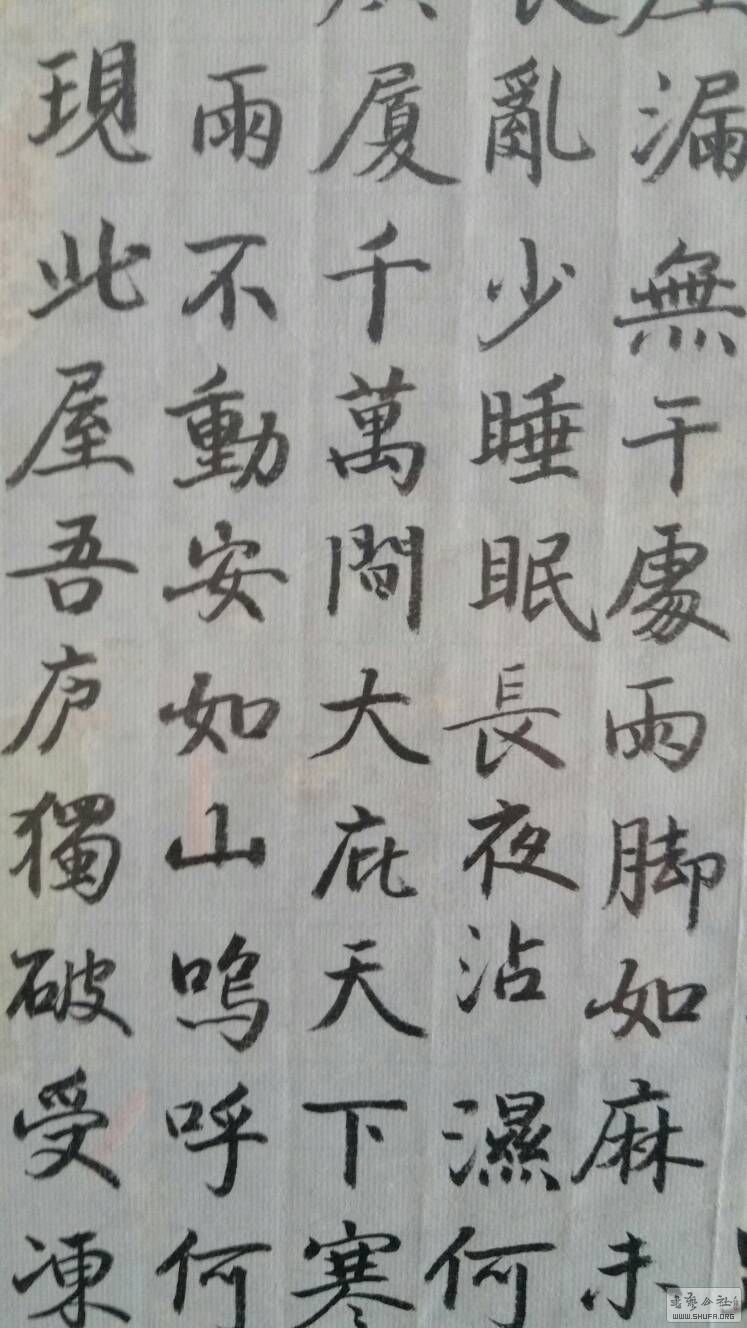 漏無干處雨脚如麻未
亂少睡眠長夜沾濕何
厦千萬間大庇天下寒
雨不動安如山嗚呼何
現此屋吾庐獨破受凍
WWW.SHUFA.ORG